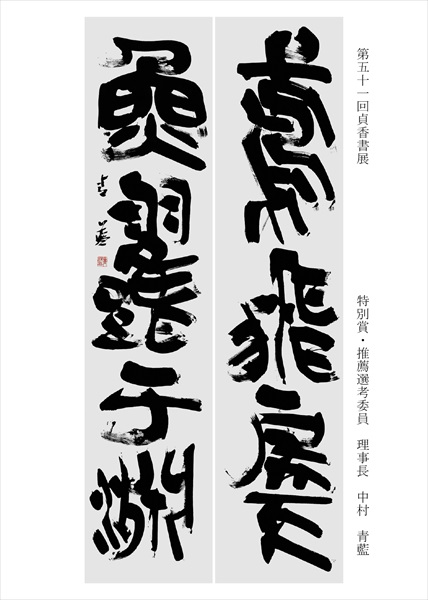 第五十一回貞香書展
特別賞・推薦選考委員 理事長 中村 青藍
鳶飛戻天
魚躍于淵
青藍